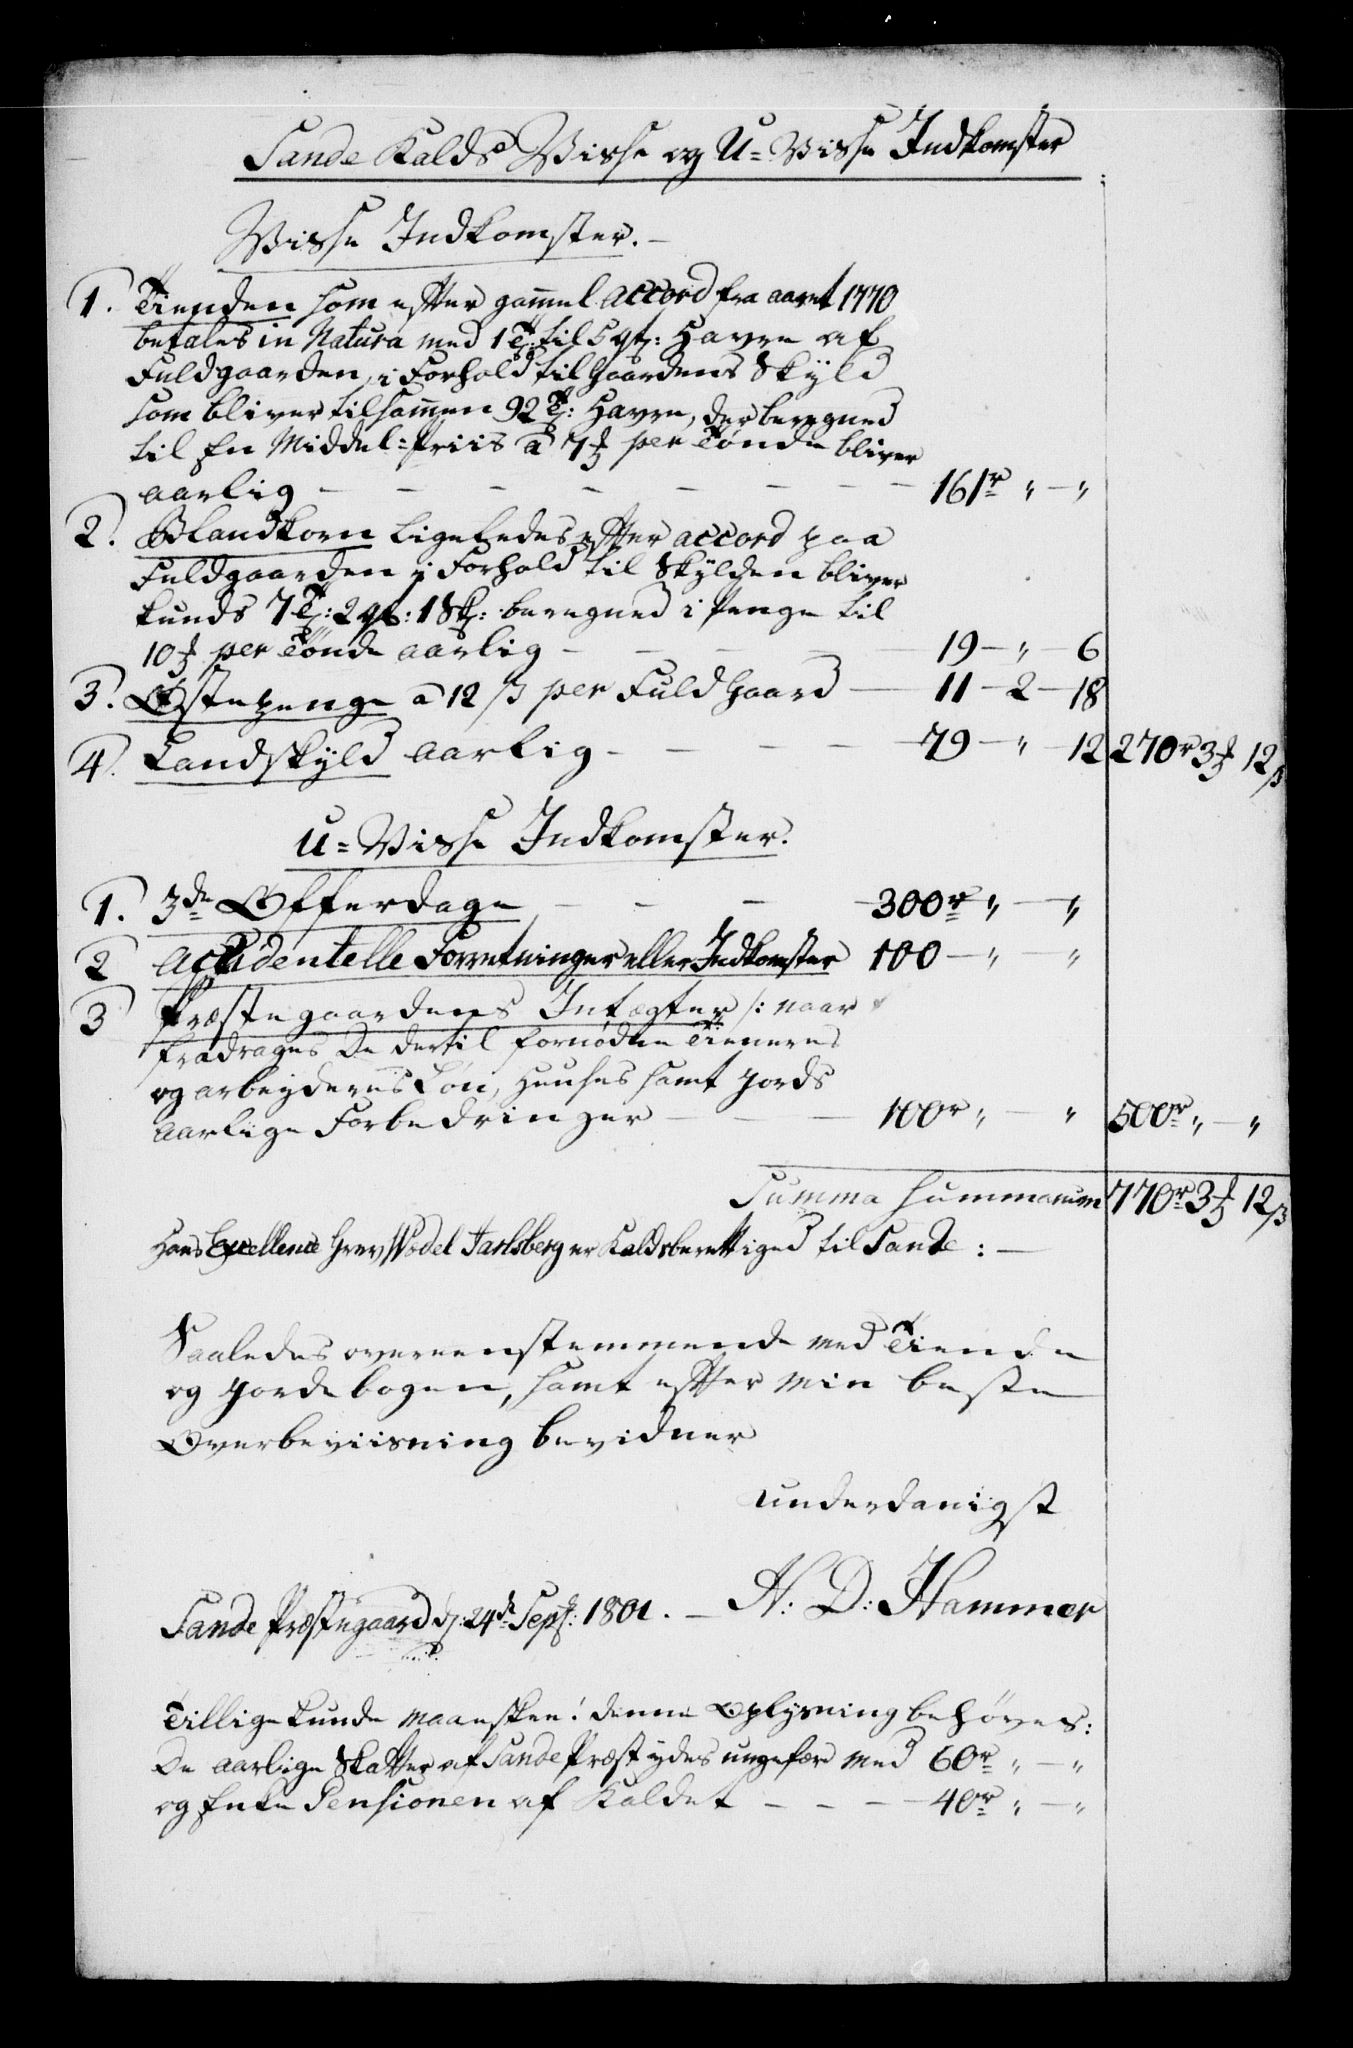 Sande Kalds Visse og U-Visse Indkomster
Visse Indkomster.
1. Tienden som efter gammel accord fra aaret 1770
betales in Natura med 1 Td: til 5 qt: Havre af
Fuldgaarden, i Forhold til Gaardens Skyld
som bliver tilsammen 92 Td: Havre, der beregned
til en Middel-Priis a 7 ₰ per Tønde bliver
aarlig — — — — — — — 161r „ — „
2. Blandkorn ligeledes efter accord paa
Fuldgaarden i Forhold til Skylden bliver
kunds 7 Td: 2 qt: 1 Sk: beregned i Penge til
10 ₰ per Tønde aarlig — — — — 19 — „ — 6
3. Ostepenge a 12 β per Fuld Gaard — 11 — 2 — 18
4. Landskyld aarlig — — — — 79 — „ — 12 270r 3₰ 12β
U-Visse Indkomster.
1. 3de Offerdage — — — 300r „ — „
2 Accidentelle Forretninger eller Indkomster 100 — „ — „
3 Præstegaardens Intægter /: naar
fradrages De dertil fornødne Tieneres
og arbeyderes Løn, Huuses samt Jords
aarlige Forbedringer — — — 100r „ — „ 500r „ — „
Summa Summarum 770r 3₰ 12β
Hans Excellence Grev Wedel Jarlsberg er Kaldsberettiged til Sande: —
Saaledes overeenstemmende med Tiende
og Jordebogen, samt efter min beste
Overbeviisning bevidner
underdanigst
Sande Præstegaard d: 24de Sept: 1801. — H: D: Hammer
Tillige kunde maaskee! denne Oplysning behøves:
De aarlige Skatter af Sande Præst ydes ungefær med 60r „ — „
og Enke Pensionen af Kaldet — — — 40r „ — „